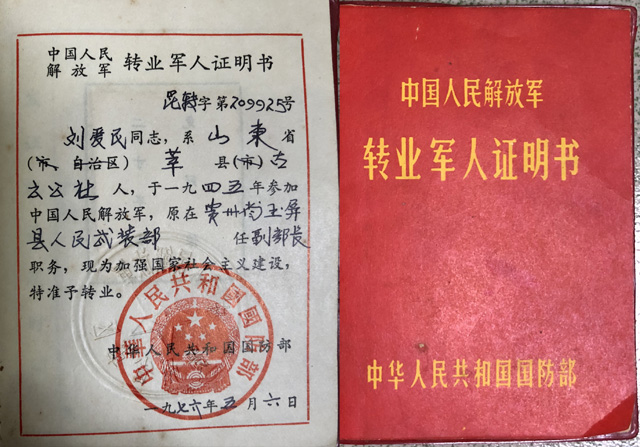 中国人民
解放军
转业军人证明书
昆转字第209925号
刘爱民同志，系山东省
（市、自治区）莘县（市）古
云公社人，于一九四五年参加
中国人民解放军，原在贵州省玉屏
县人民武装部任副部长
职务，现为加强国家社会主义建设，
特准予转业。
中华人民共和国国防部
一九七六年五月六日
中华人民共和国國防部
中国人民解放军
转业军人证明书
中华人民共和国国防部